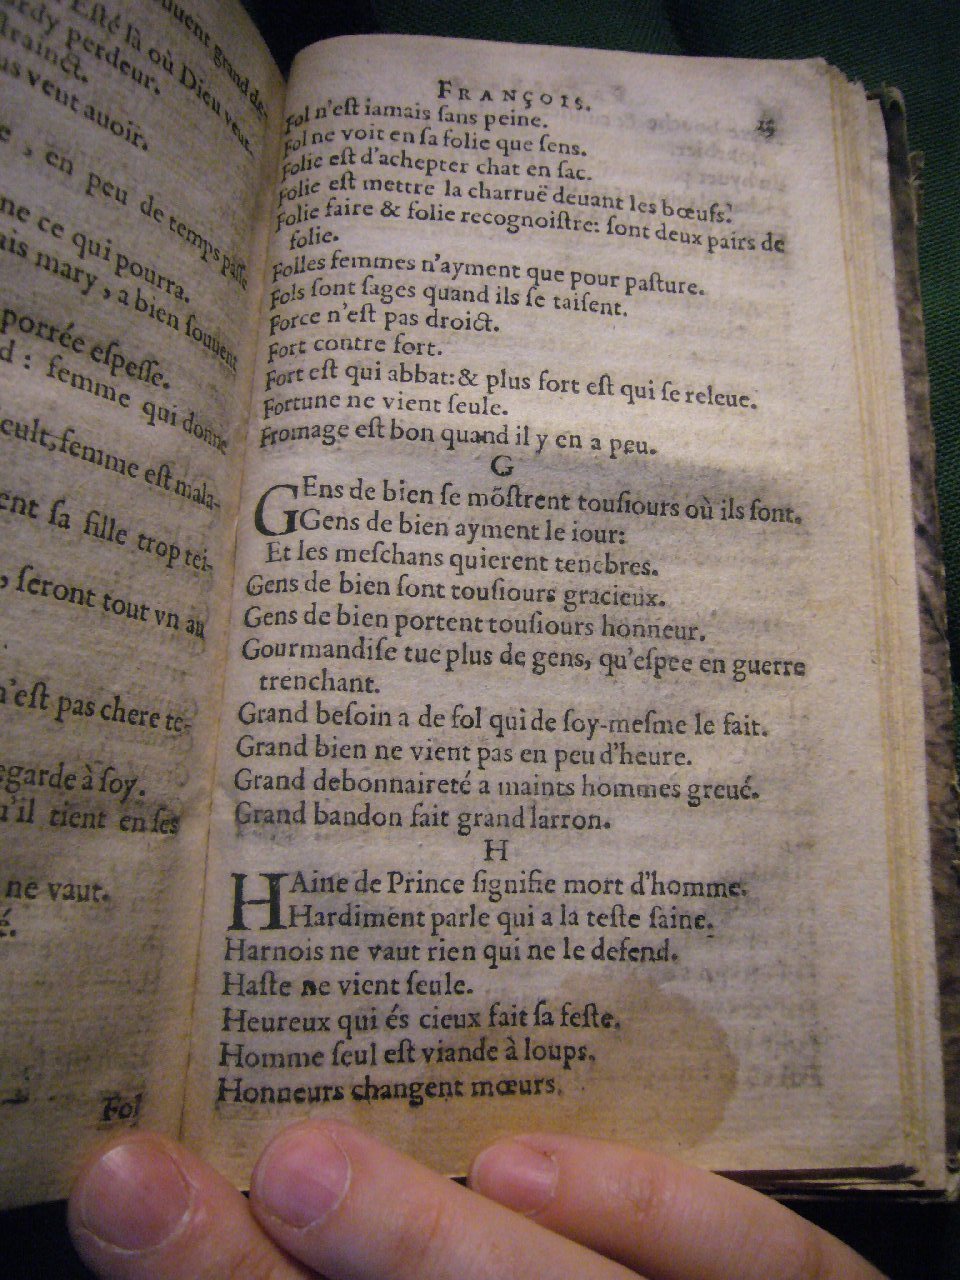 uuent grand de-
Esté là où Dieu veut.
rdy perdeur.
trainct.
us veut auoir.
e, en peu de temps passe
ne ce qui pourra.
ais mary, a bien souuent
porrée espesse.
d: femme qui donne
cult, femme est mala-
ent sa fille trop tei-
, seront tout vn au
n'est pas chere te-
egarde à soy.
u'il tient en ses
ne vaut.
é.
Fol
FRANÇOIS.
15
Fol n'eſt iamais ſans peine.
Fol ne voit en ſa folie que ſens.
Folie eſt d'achepter chat en ſac.
Folie eſt mettre la charruë deuant les bœufs.
Folie faire & folie recognoiſtre: ſont deux pairs de
folie.
Folles femmes n'ayment que pour paſture.
Fols ſont ſages quand ils ſe taiſent.
Force n'eſt pas droict.
Fort contre fort.
Fort eſt qui abbat: & plus fort eſt qui ſe releue.
Fortune ne vient ſeule.
Fromage eſt bon quand il y en a peu.
G
GEns de bien ſe mõſtrent touſiours où ils ſont.
Gens de bien ayment le iour:
Et les meſchans quierent tenebres.
Gens de bien ſont touſiours gracieux.
Gens de bien portent touſiours honneur.
Gourmandiſe tue plus de gens, qu'eſpee en guerre
trenchant.
Grand beſoin a de fol qui de ſoy-meſme le fait.
Grand bien ne vient pas en peu d'heure.
Grand debonnaireté a maints hommes greué.
Grand bandon fait grand larron.
H
HAine de Prince ſignifie mort d'homme.
Hardiment parle qui a la teſte ſaine.
Harnois ne vaut rien qui ne le defend.
Haſte ne vient ſeule.
Heureux qui és cieux fait ſa feſte.
Homme ſeul eſt viande à loups.
Honneurs changent mœurs.